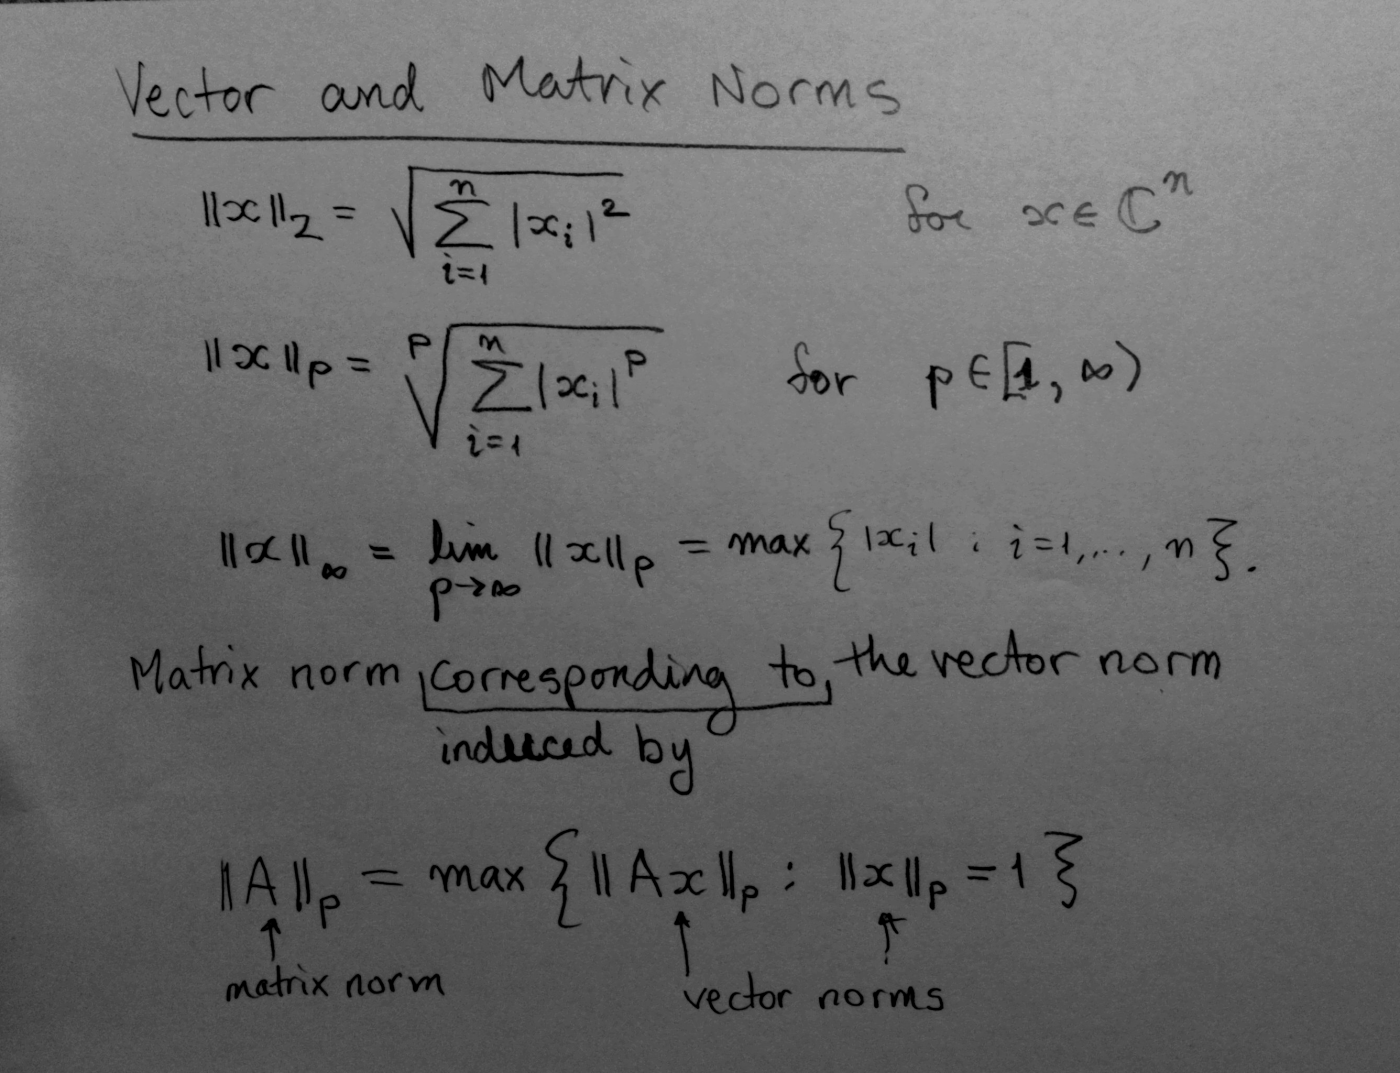 Vector and Matrix Norms
‖x‖₂ = √(∑ᵢ₌₁ⁿ |xᵢ|²) for x ∈ ℂⁿ
‖x‖ₚ = ᵖ√(∑ᵢ₌₁ⁿ |xᵢ|ᵖ) for p ∈ [1, ∞)
‖x‖_∞ = lim_{p→∞} ‖x‖ₚ = max { |xᵢ| : i=1,..., n }.
Matrix norm corresponding to the vector norm
induced by
‖A‖ₚ = max { ‖Ax‖ₚ : ‖x‖ₚ = 1 }
↑ ↑ ↑
matrix norm vector norms